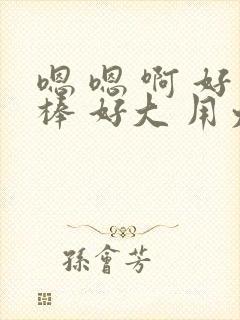 嗯嗯啊好
棒好大用
孫會芳